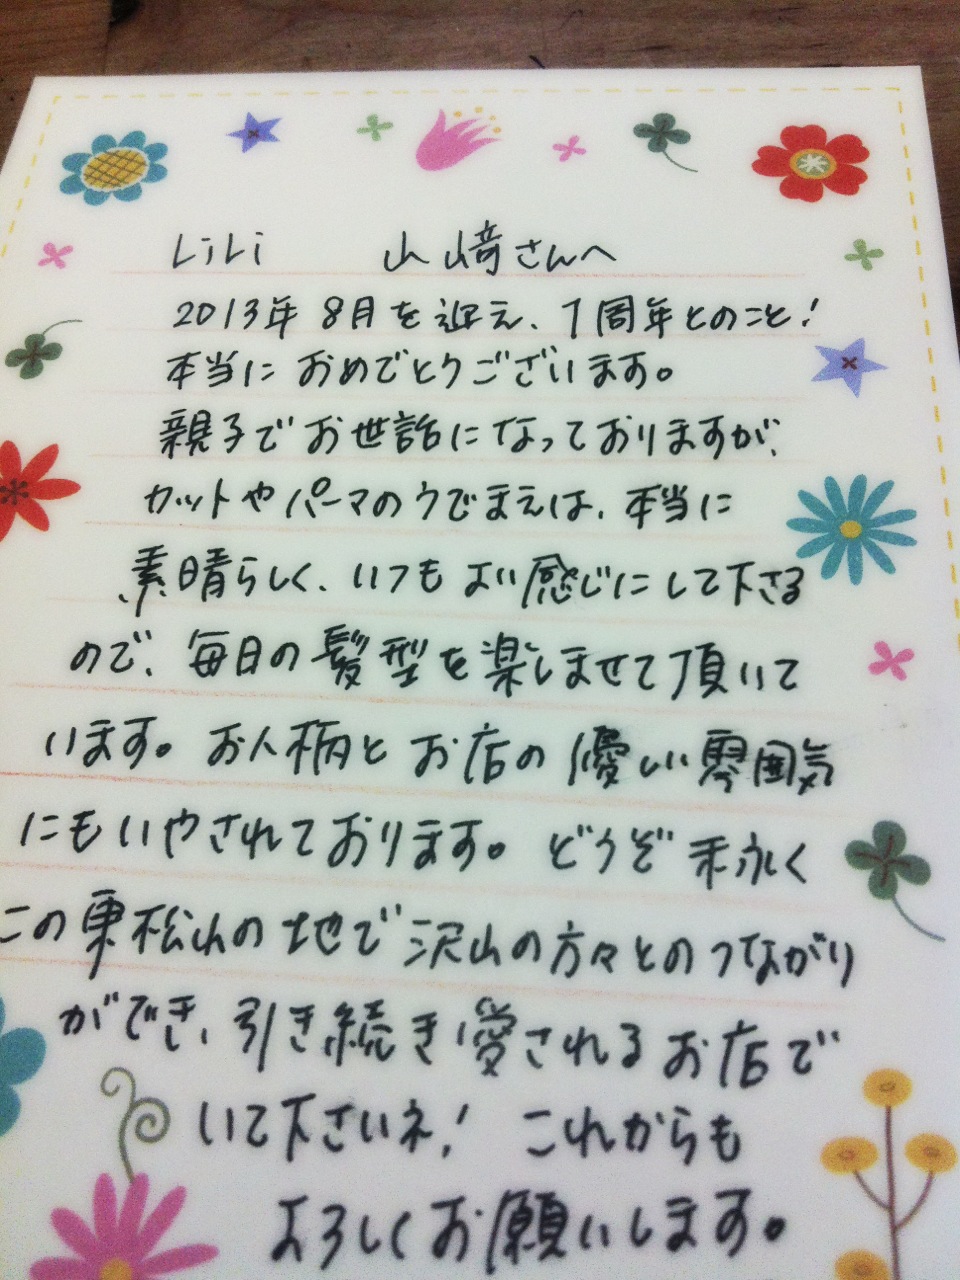 LiLi 山﨑さんへ
2013年 8月を迎え、1周年とのこと!
本当に おめでとうございます。
親子で お世話になっておりますが、
カットや パーマのうでまえは、本当に
素晴らしく、いつも よい感じにして下さる
ので、毎日の髪型を楽しませて頂いて
います。お人柄と お店の優しい雰囲気
にもいやされております。どうぞ末永く
この東松山の地で沢山の方々とのつながり
ができ、引き続き愛されるお店で
いて下さいネ! これからも
よろしくお願いします。